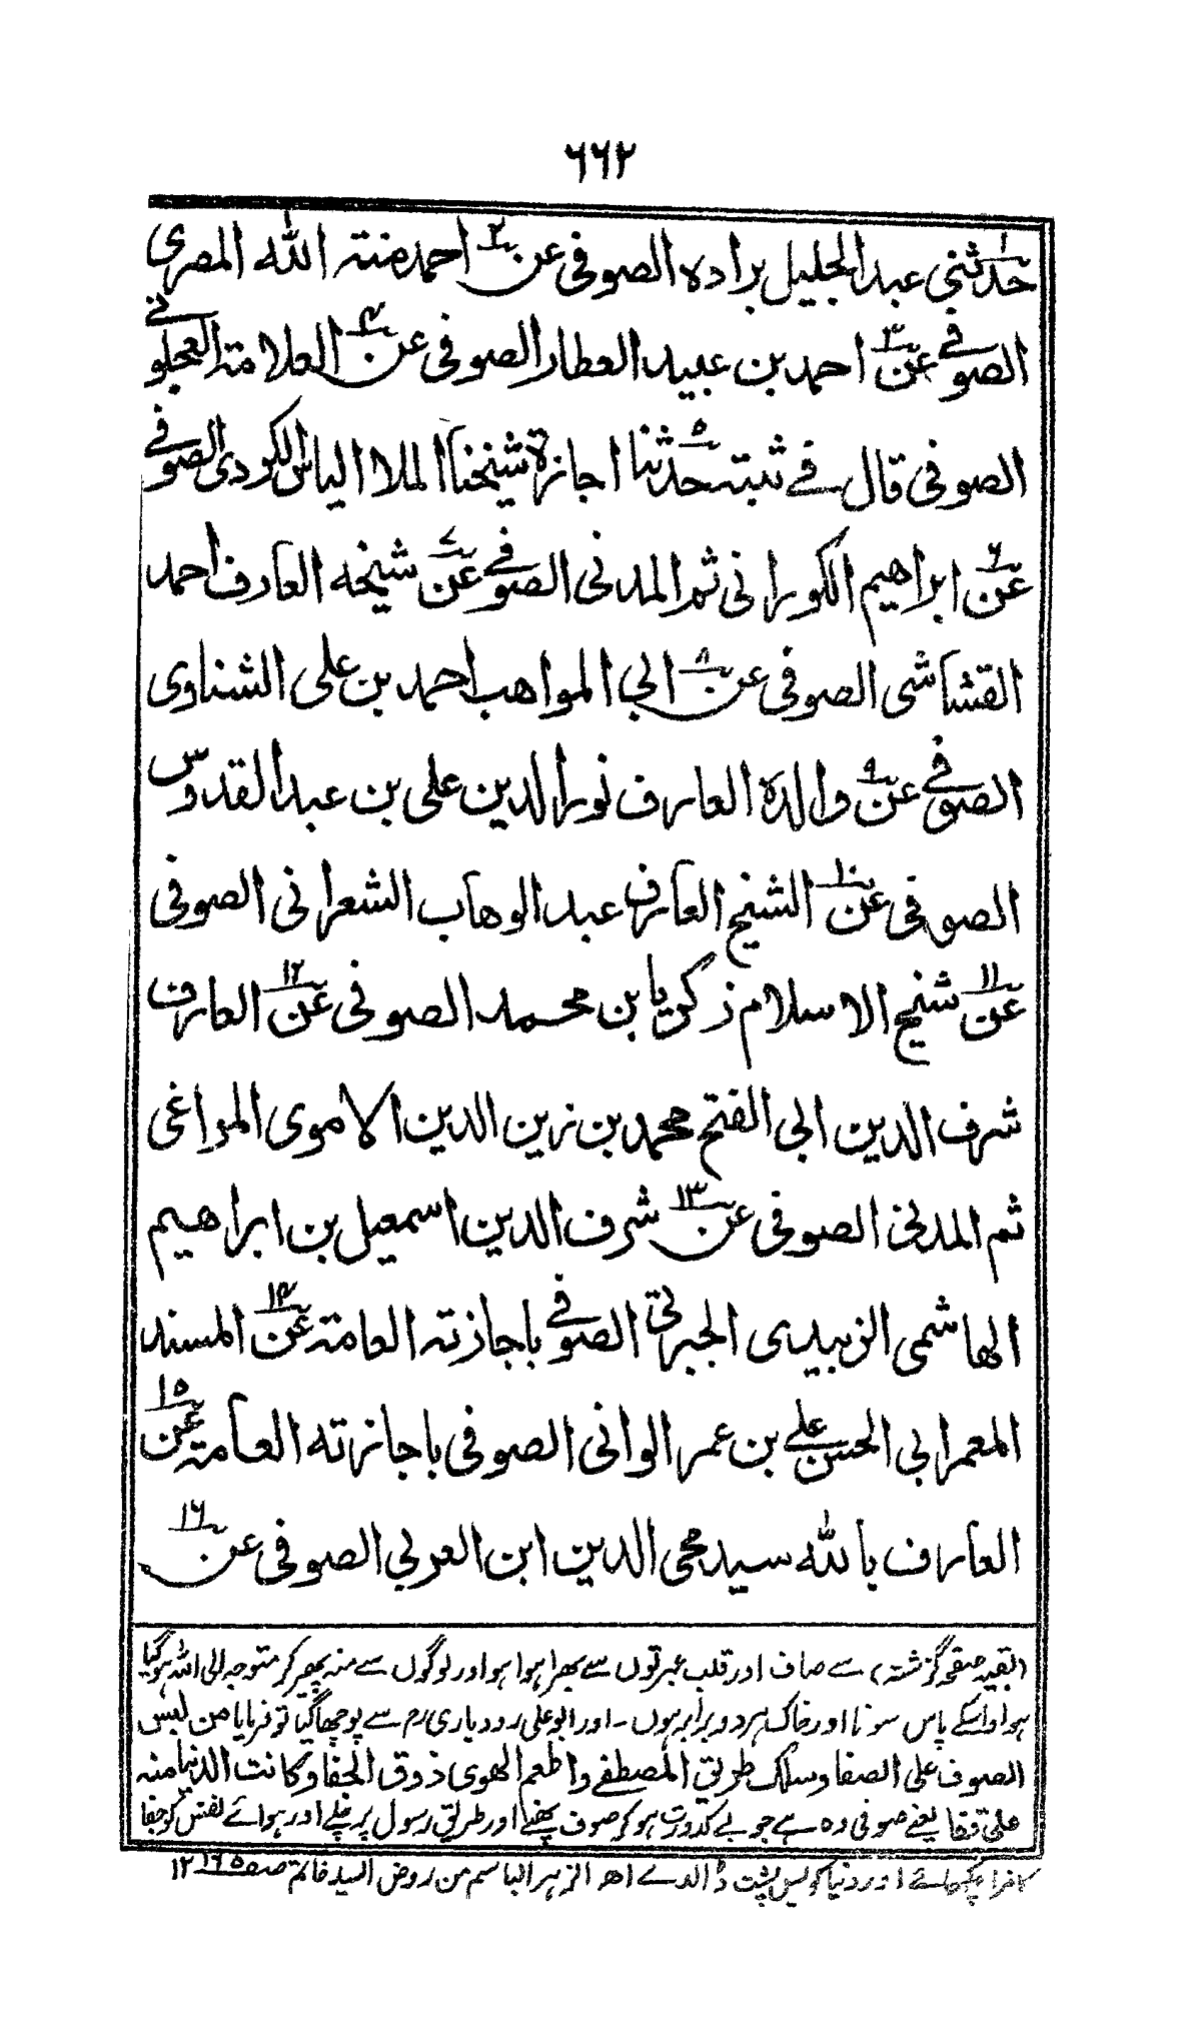 ٦٦٢
١ حدثني عبد الجليل براده الصوفي عن ٢ احمد منتہ الله المصرى
الصوفي عن ٣ احمد بن عبيد العطار الصوفى عن ٤ العلامة العجلونى
الصوفى قال فے ثبتہ حدثنا ٥ اجازة شيخنا الملا الياس الكوردى الصوفے
عن ٦ ابراهيم الكورانى ثم المدنى الصوفے عن ٧ شيخه العارف احمد
القشاشى الصوفى عن ٨ ابي المواهب احمد بن على الشناوى
الصوفے عن ٩ والده العارف نور الدين على بن عبد القدوس
الصوفى عن ١٠ الشيخ العارف عبد الوهاب الشعرانى الصوفى
عن ١١ شيخ الاسلام زكريا بن محمد الصوفى عن ١٢ العارف
شرف الدين ابي الفتح محمد بن زين الدين الاموى المراغى
ثم المدنى الصوفى عن ١٣ شرف الدين اسمعيل بن ابراهيم
الهاشمى الزبيدى الجبرتى الصوفے باجازتہ العامة عن ١٤ المسند
المعمر ابي الحسن علے بن عمر الوانى الصوفى باجازته العامة عن ١٥
العارف بالله سيد محى الدين ابن العربي الصوفى عن ١٦
(بقیہ صفحہ گزشتہ) سے صاف اور قلب عبرتوں سے بھرا ہوا ہو اور لوگوں سے منہ پھیر کر متوجہ الی اللہ ہو گیا
ہو اور اسکے پاس سونا اور خاک ہر دو برابر ہوں ۔ اور ابو علی رودباری رم سے پوچھا گیا تو فرمایا من لبس
الصوف على الصفا وسلك طريق المصطفے واطعم الهوى ذوق الجفا وكانت الدنيا منه
على قفا یعنے صوفی وہ ہے جو بے کدورت ہو کر صوف پہنے اور طریق رسول پر چلے اور ہوائے نفس کو جفا
کا مزا چکھائے اور دنیا کو پس پشت ڈالدے اھ الزهر الباسم من روض السید قاسم صفہ ١٦٥ ١٢